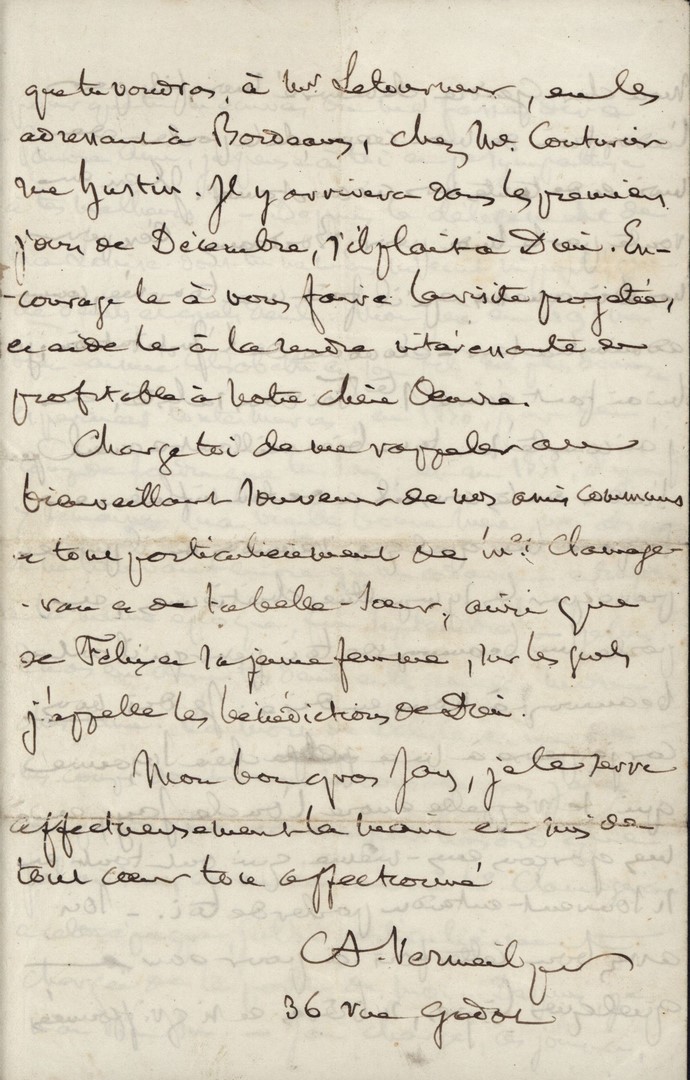 que tu voudras, à Mr. Letourneur, en les
adressant à Bordeaux, chez Mr. Couturier
rue Hustin. Il y arrivera dans les premiers
jours de Décembre, s'il plait à Dieu. En-
-courage le à vous faire la visite projetée,
et aide le à la rendre intéressante et
profitable à notre chère Oeuvre.
Charge toi de me rappeler au
bienveillant souvenir de nos amis communs
et tout particulièrement de Clamage-
-ran et de ta belle-soeur, ainsi que
de Félix et sa jeune femme, sur les quels
j'appelle les bénédictions de Dieu.
Mon bon gros Jay, je te serre
affectueusement la main et suis de
tout coeur ton affectionné
A. Vermeil
36 rue Godot